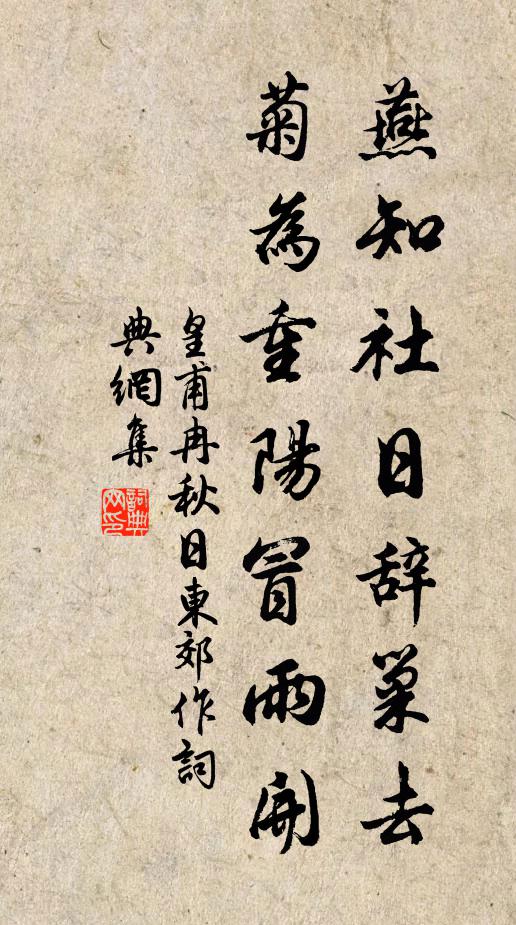 燕知社日辞巢去
菊為重陽冒雨開
皇甫冉秋日東郊作詞
典網集
詞典
网印